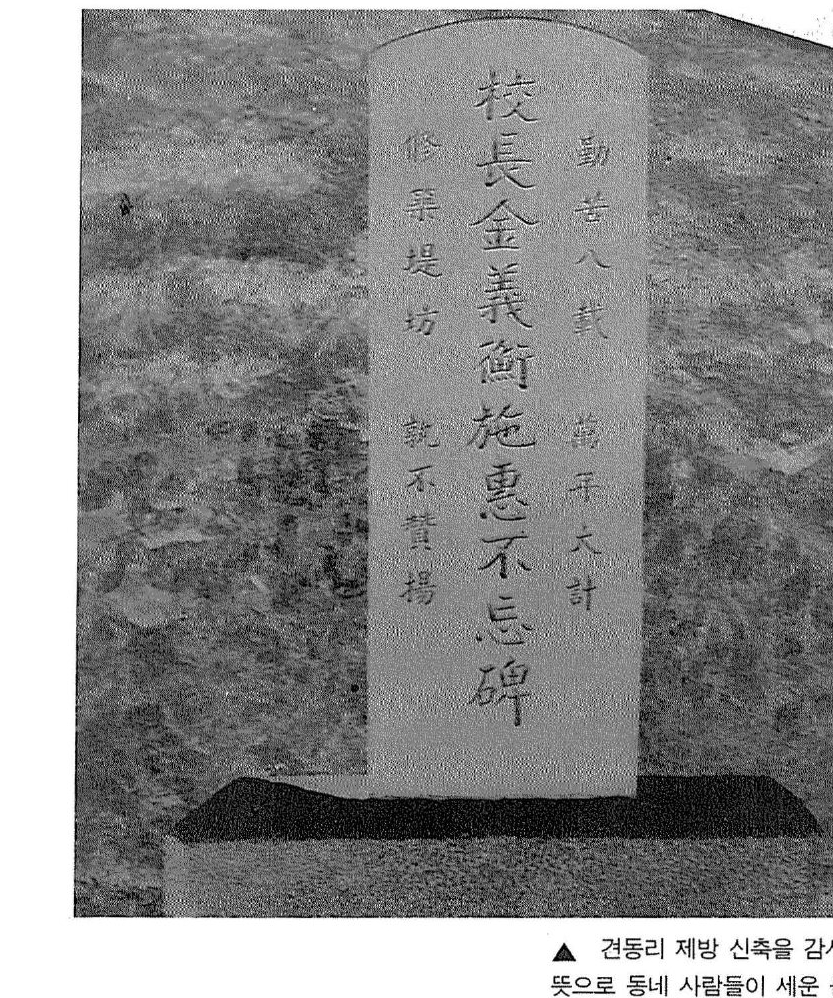 勤苦八載 萬年大計
校長金義衡施惠不忘碑
修築堤坊 孰不贊揚
▲ 견동리 제방 신축을 감사
뜻으로 동네 사람들이 세운